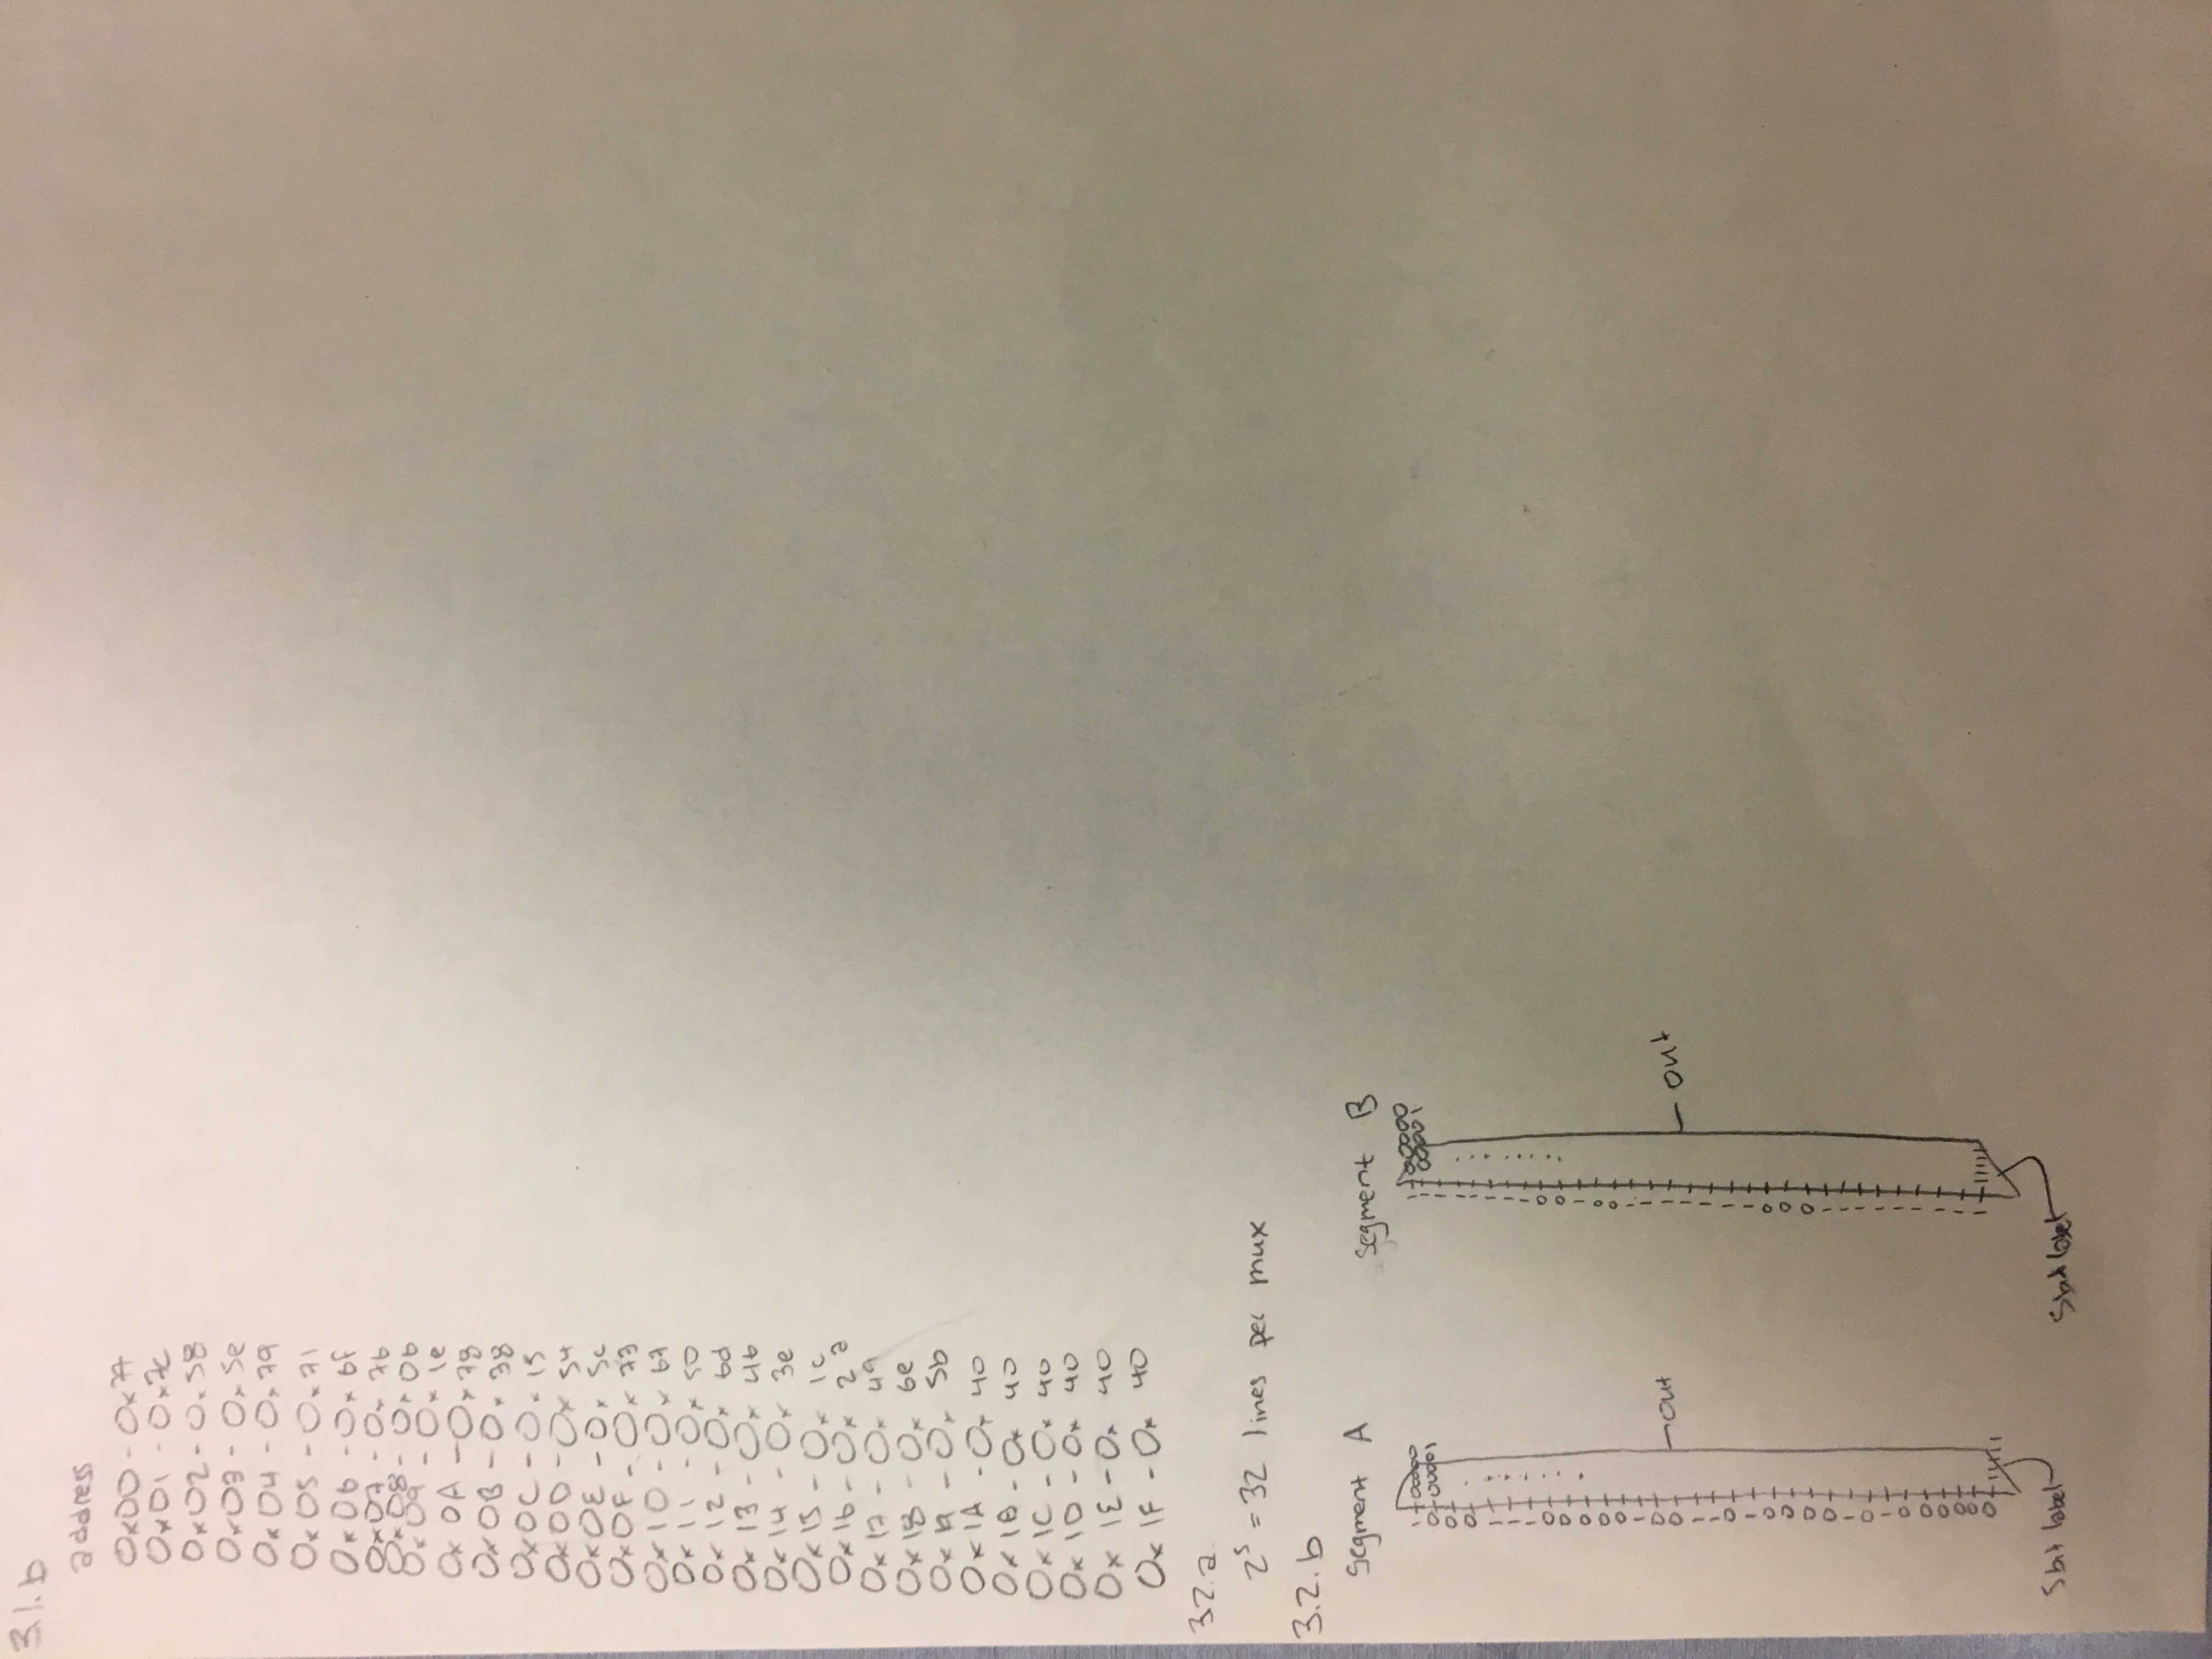 3.1.b
address
0x00 - 0x77
0x01 - 0x7c
0x02 - 0x58
0x03 - 0x5e
0x04 - 0x79
0x05 - 0x71
0x06 - 0x6f
0x07 - 0x76
0x08 - 0x06
0x09 - 0x1e
0x0A - 0x78
0x0B - 0x38
0x0C - 0x15
0x0D - 0x54
0x0E - 0x5c
0x0F - 0x73
0x10 - 0x67
0x11 - 0x50
0x12 - 0x6d
0x13 - 0x46
0x14 - 0x3e
0x15 - 0x1c
0x16 - 0x2a
0x17 - 0x49
0x18 - 0x6e
0x19 - 0x5b
0x1A - 0x40
0x1B - 0x40
0x1C - 0x40
0x1D - 0x40
0x1E - 0x40
0x1F - 0x40
3.2.a
2^5 = 32 lines per mux
3.2.b
Segment A
1 00000
0 00001
0
0
1
1
1
0
0
0
0
0
1
0
0
1
1
0
1
0
0
0
0
1
0
1
0
0
0
0
0
0
11111
out
5 bit label
Segment B
00000
00001
11111
out
5 bit label